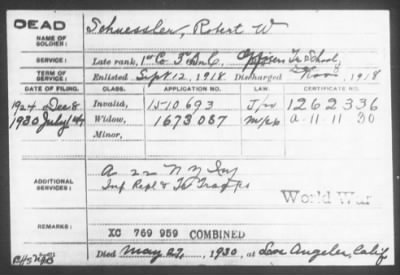 DEAD
NAME OF SOLDIER: Schuessler, Robert W
SERVICE: Late rank, 1st Co Officers Tr School,
TERM OF SERVICE: Enlisted Sept 12, 1918 Discharged Nov , 1918
DATE OF FILING. CLASS. APPLICATION NO. LAW. CERTIFICATE NO.
1924 Dec 8 Invalid, 1510693 1262336
1930 July Widow, 1673087 a-11-11 30
Minor,
ADDITIONAL SERVICES: A 22 N Y Inf
Inf Repl & Tr Troops
World War
REMARKS: XC 769 959 COMBINED
Died May , 1930, at Los Angeles, Calif